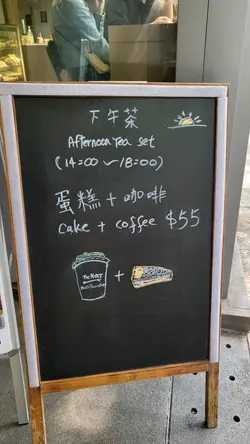 下午茶
Afternoon Tea set
(14:00 ~ 18:00)
蛋糕 + 咖啡
cake + coffee $55
+